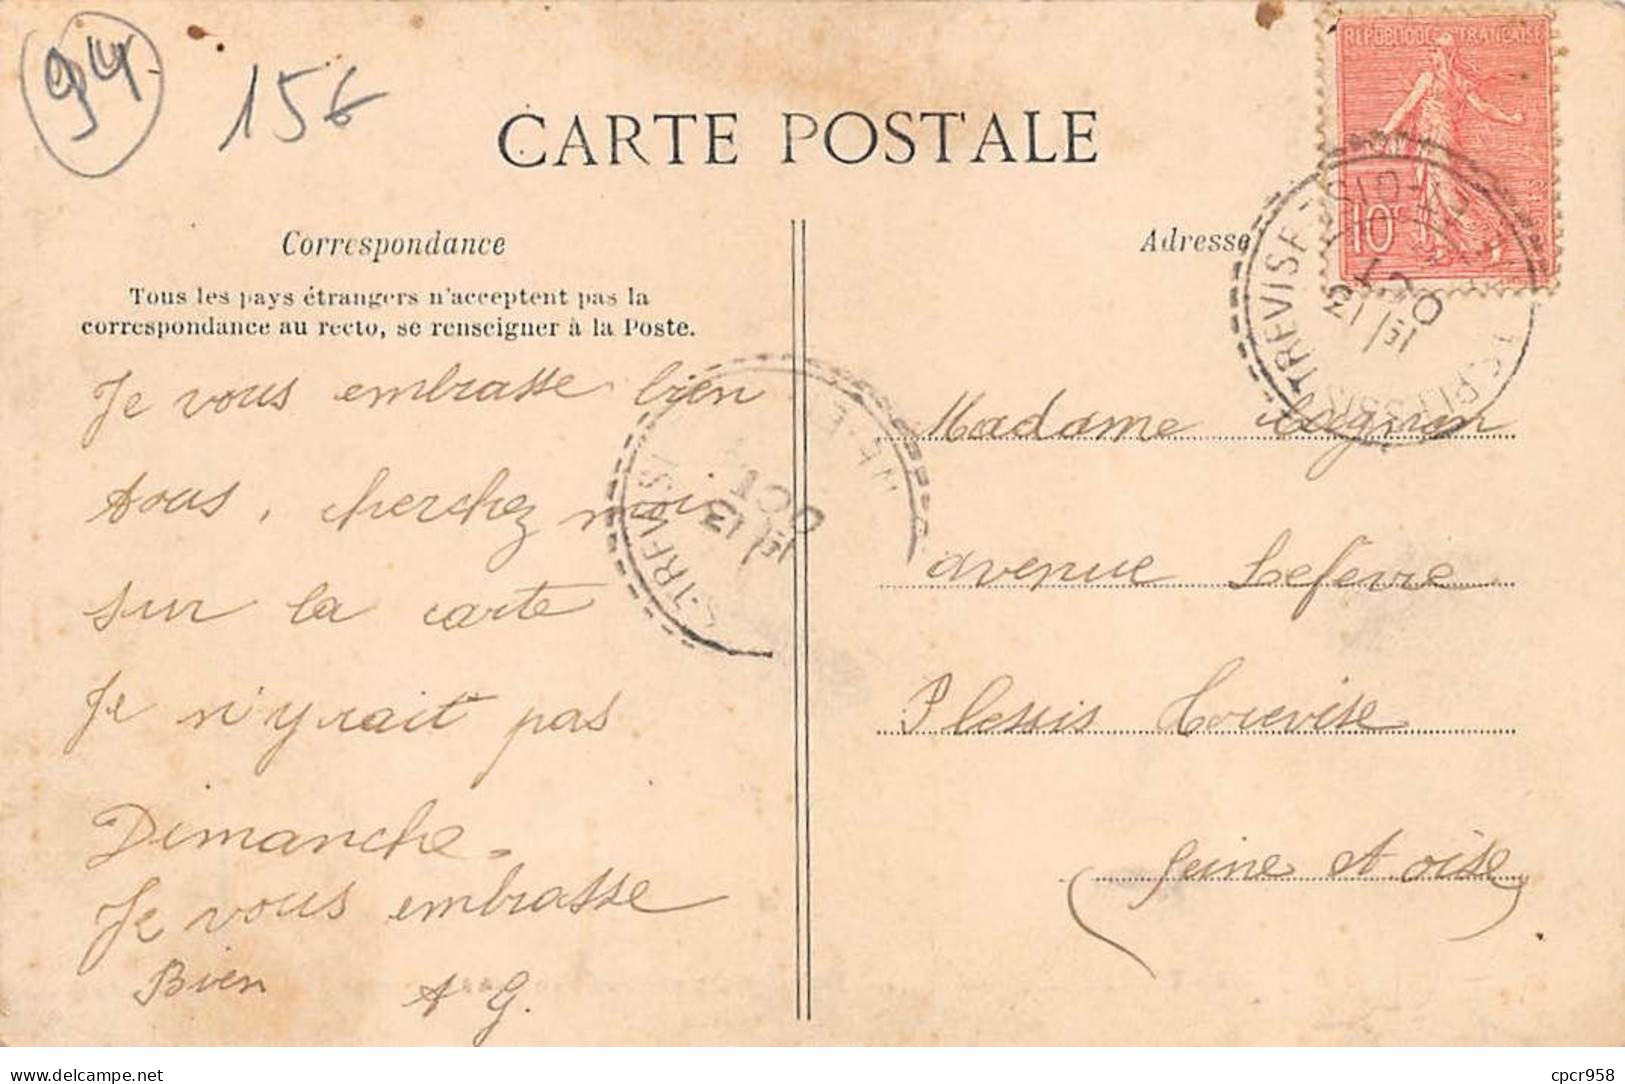 94
15€
CARTE POSTALE
RÉPUBLIQUE FRANÇAISE
10c
Correspondance
Tous les pays étrangers n'acceptent pas la
correspondance au recto, se renseigner à la Poste.
Je vous embrasse bien
tous, cherchez moi
sur la carte
Je n'yrait pas
Dimanche.
Je vous embrasse
Bien
A G.
Adresse
Madame
avenue Lefevre
Plessis Trevise
Seine et oise
TREVISE
13
OCT
LE PLESSIS-TREVISE
13
OCT
www.delcampe.net
cpcr958